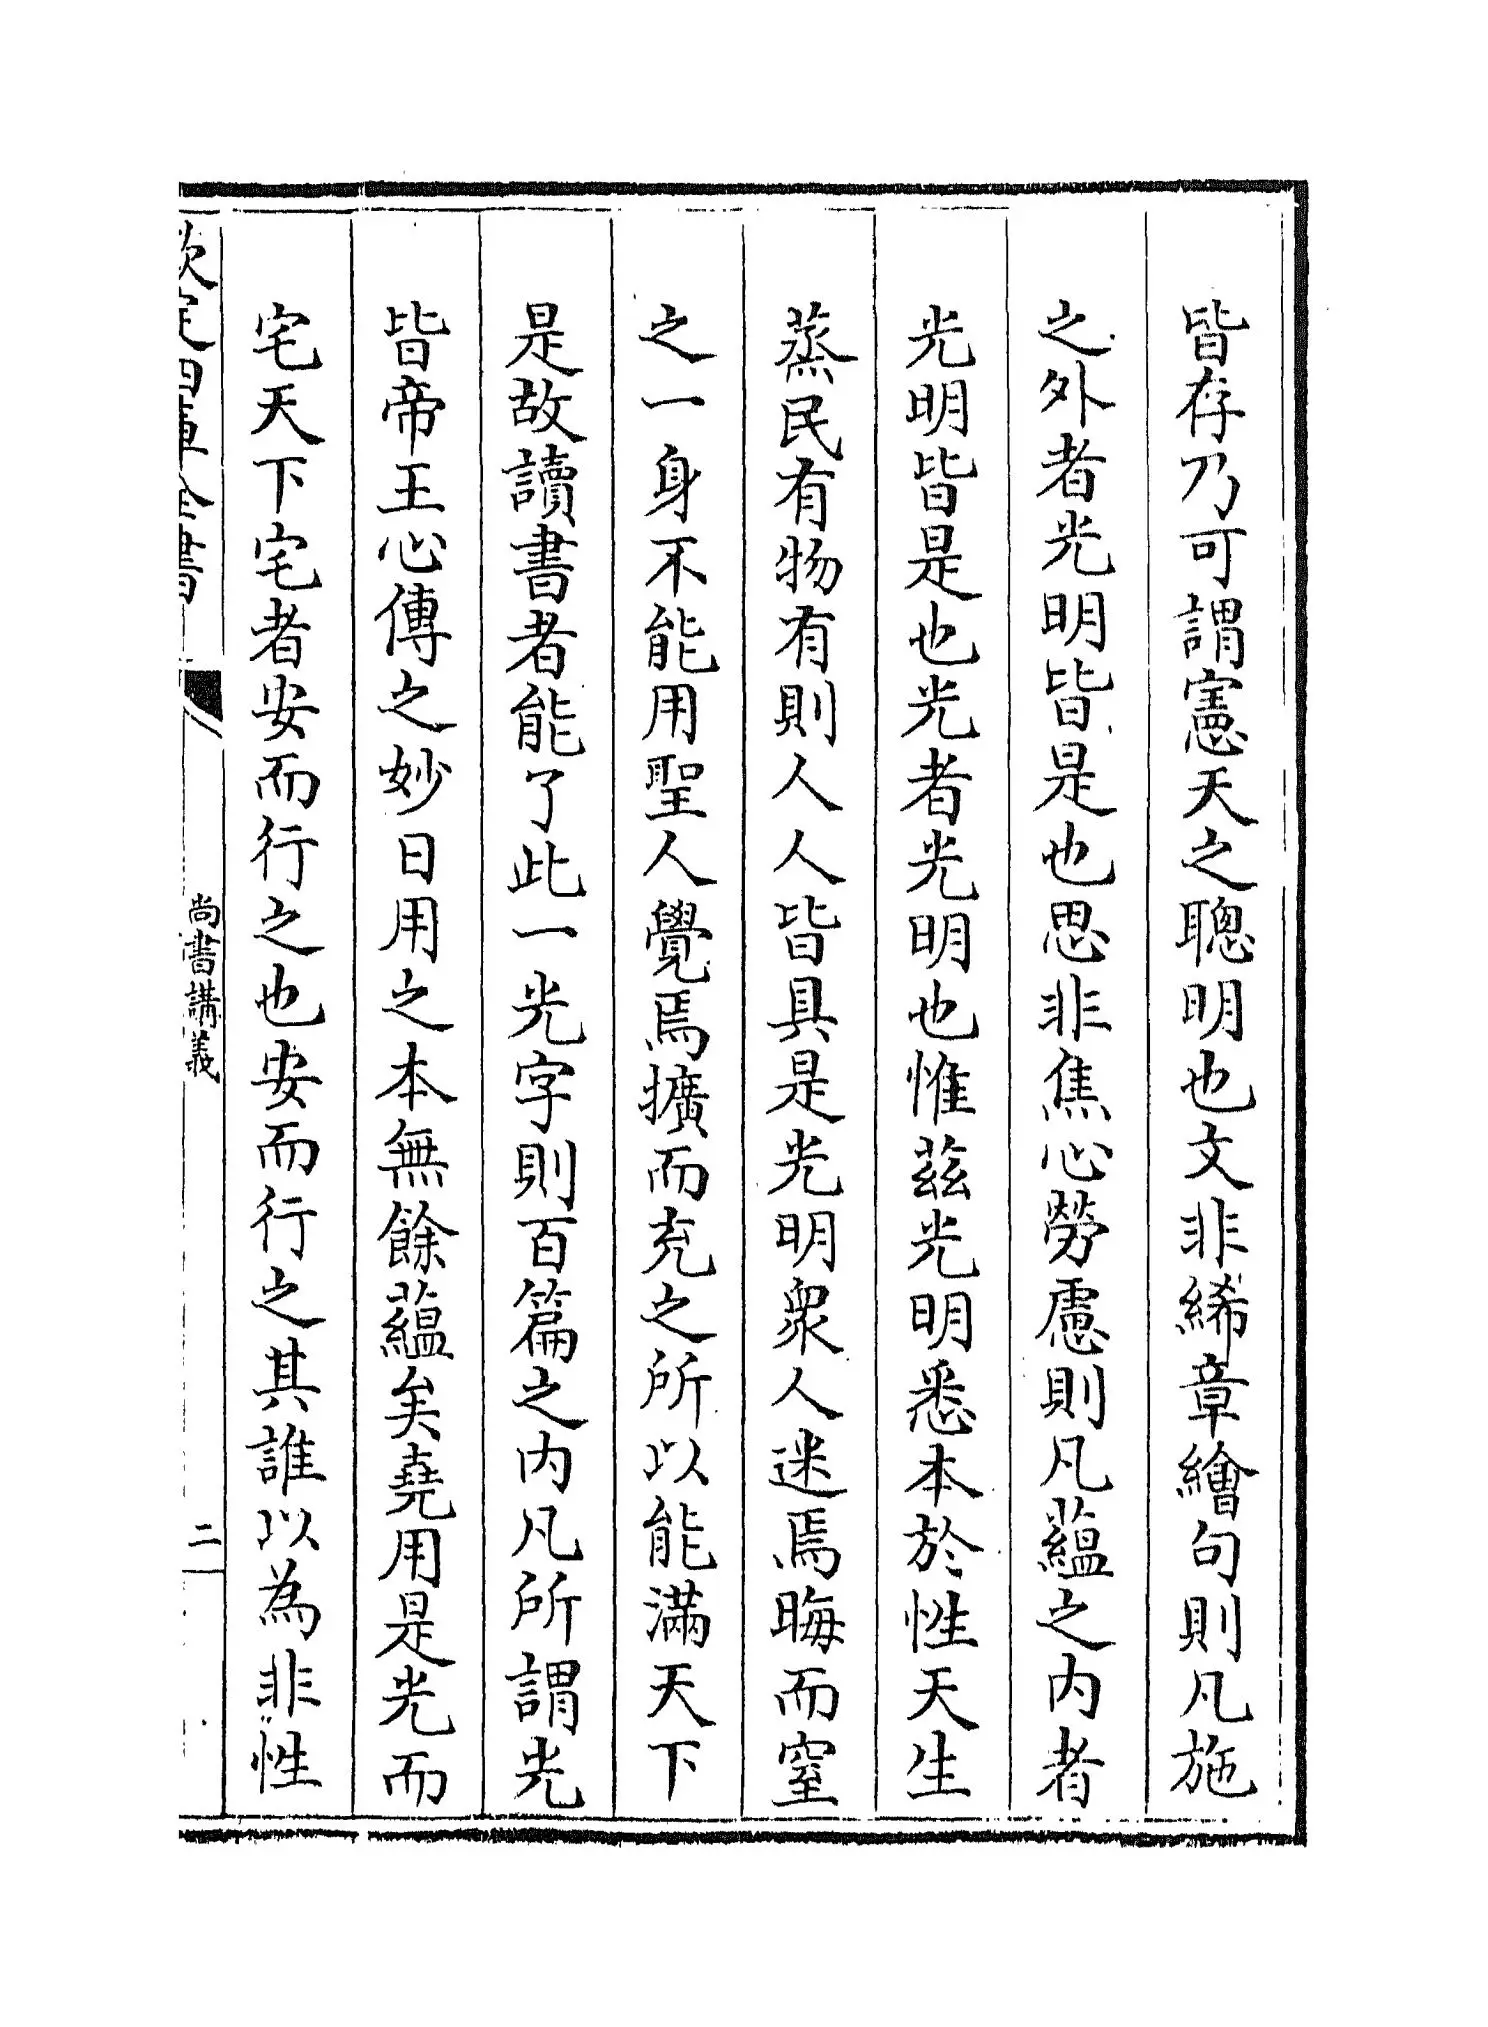 皆存乃可謂憲天之聰明也文非絺章繪句則凡施
之外者光明皆是也思非焦心勞慮則凡蘊之内者
光明皆是也光者光明也惟兹光明悉本於性天生
蒸民有物有則人人皆具是光明衆人迷焉晦而窒
之一身不能用聖人覺焉擴而充之所以能滿天下
是故讀書者能了此一光字則百篇之内凡所謂光
皆帝王心傳之妙日用之本無餘蘊矣堯用是光而
宅天下宅者安而行之也安而行之其誰以為非性
欽定四庫全書
尚書講義
二